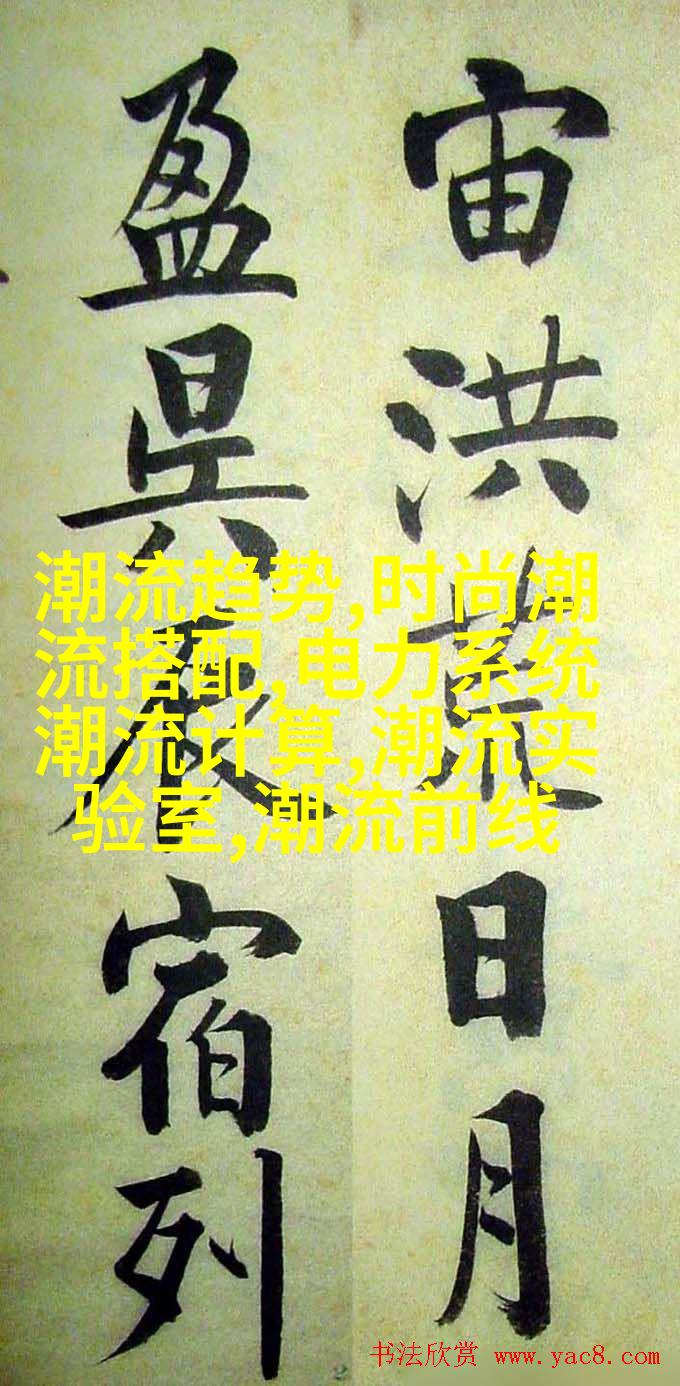 宙洪荒日月
盈昃辰宿列
潮流趋势,时尚潮
流搭配,电力系统
潮流计算,潮流实
验室,潮流前线
书法欣赏 www.yac8.com
2